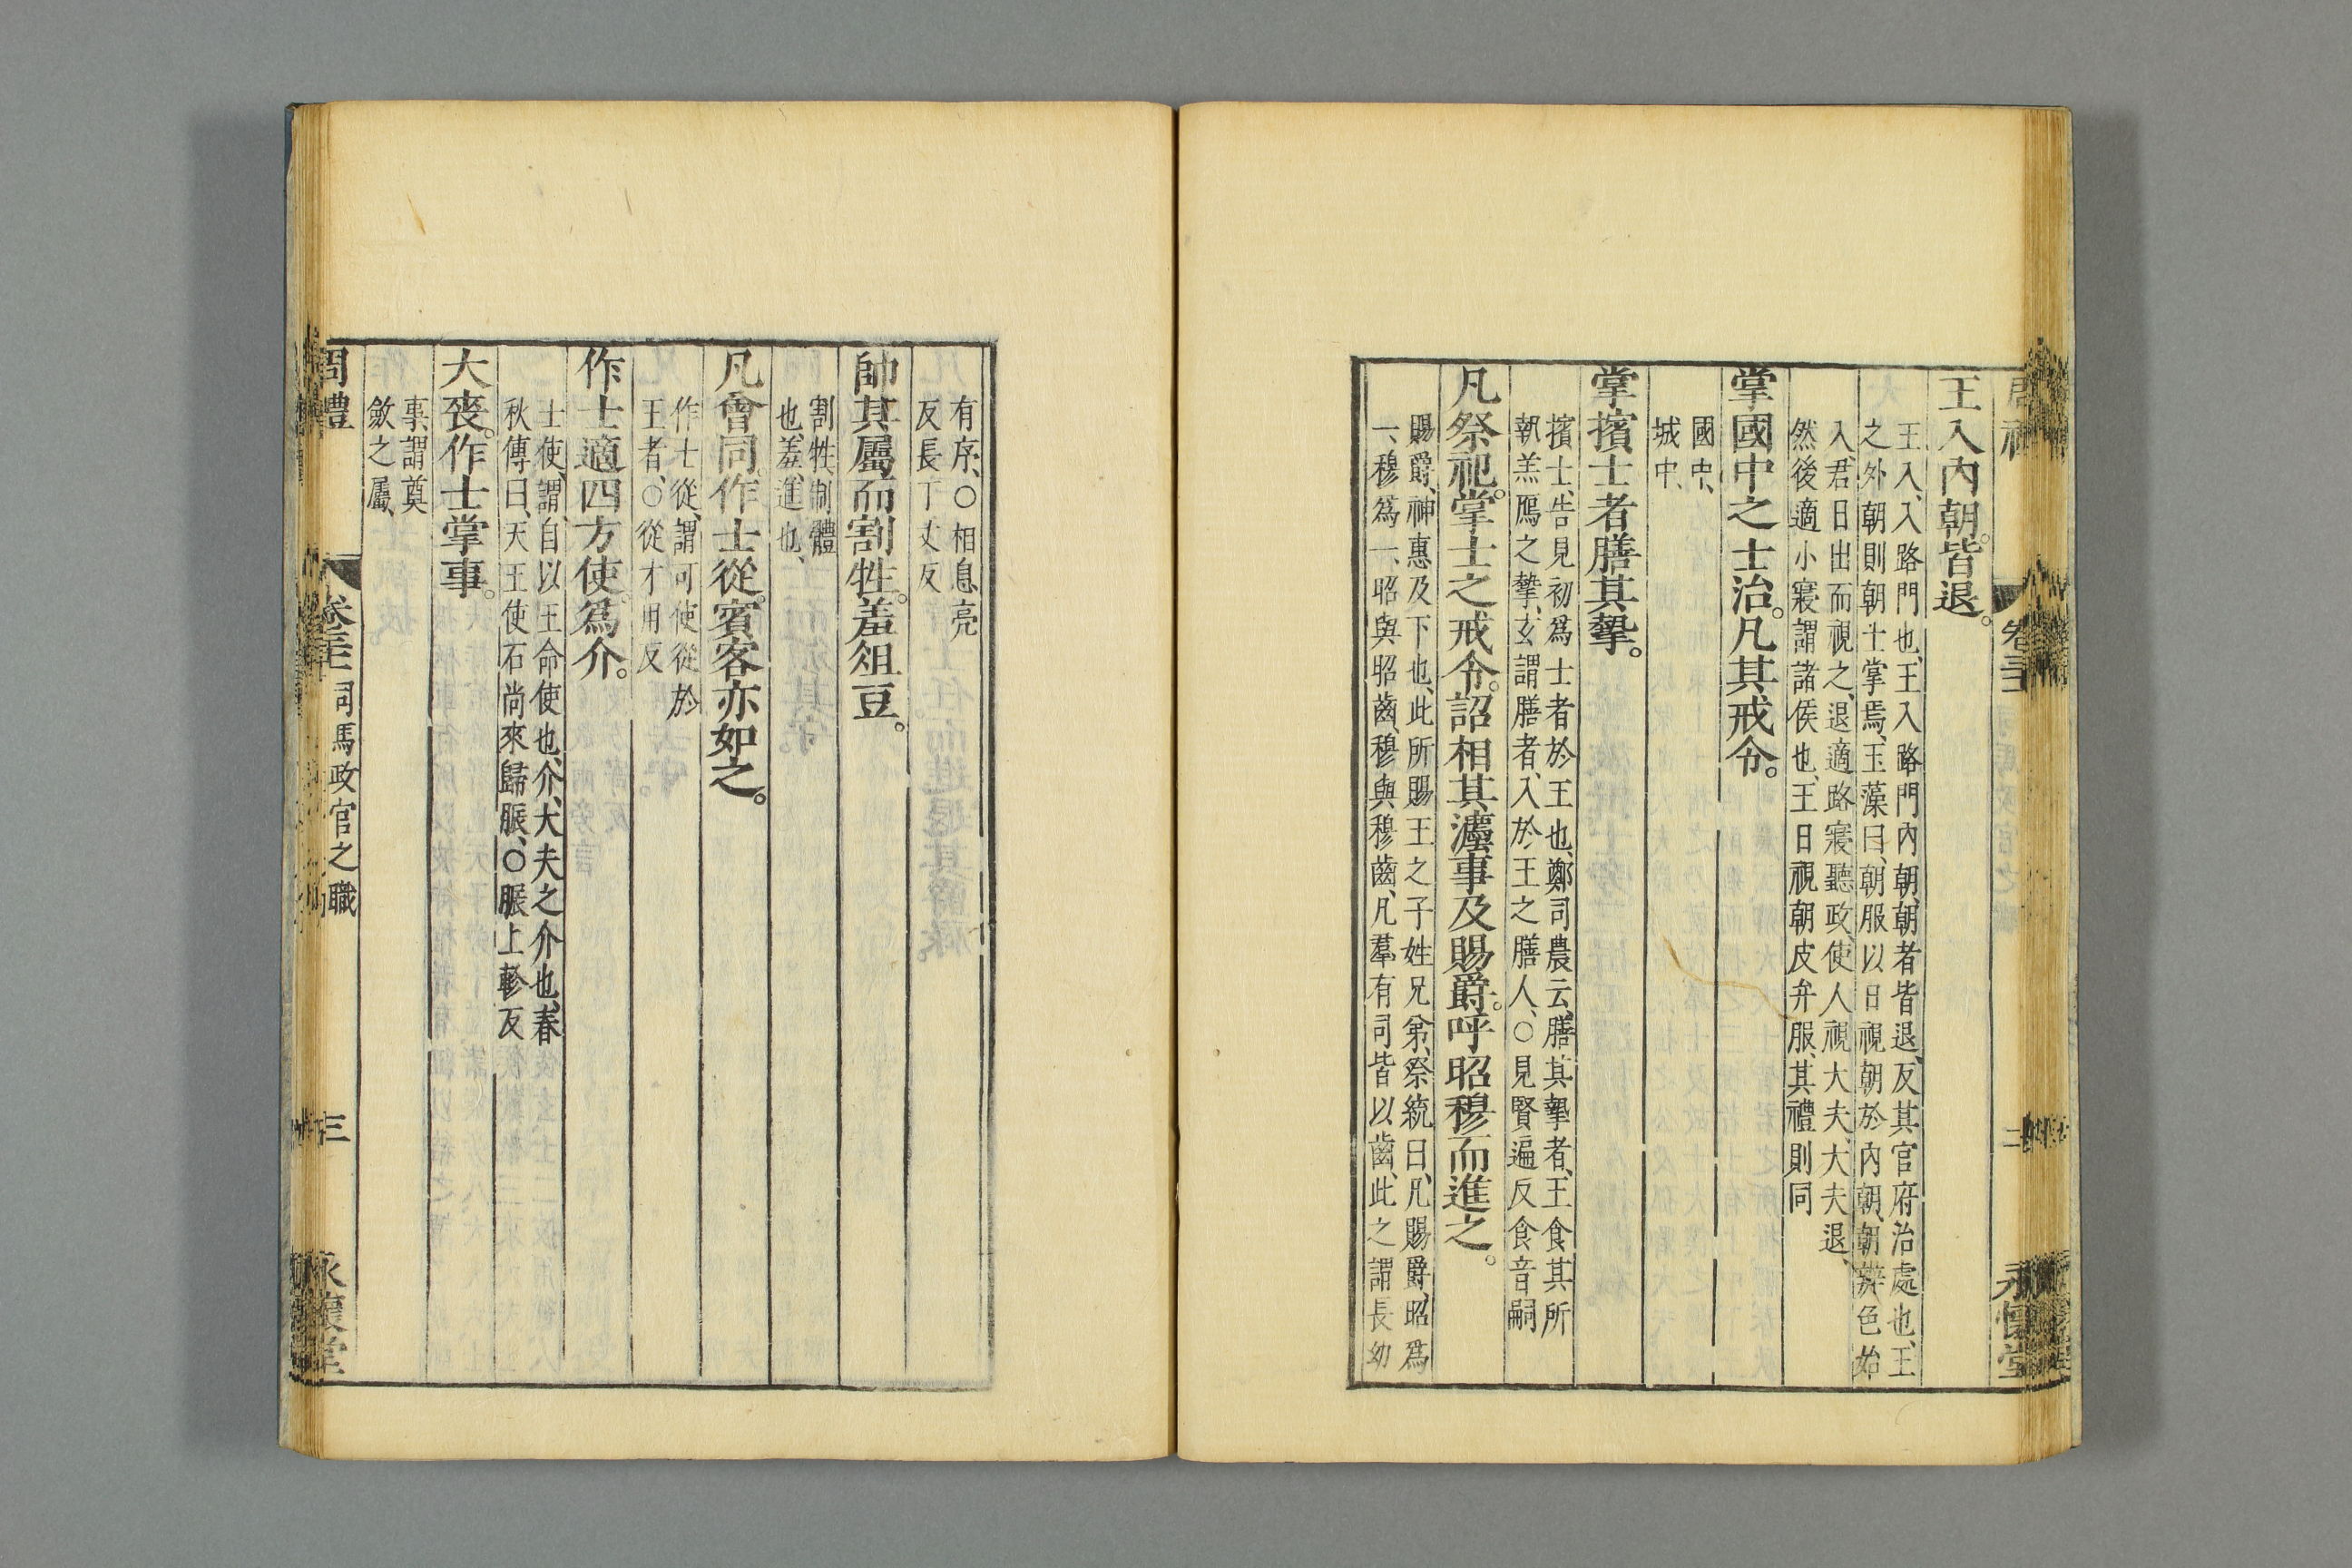 王入內朝。皆退。
王入、入路門也、王入路門內朝、朝者皆退、反其官府治處也、王
之外朝則朝士掌焉、玉藻曰、朝服以日視朝於內朝、朝辨色始
入、君日出而視之、退適路寢聽政、使人視大夫、大夫退、
然後適小寢謂諸侯也、王日視朝皮弁服、其禮則同
掌國中之士治。凡其戒令。
國中、
城中、
掌擯士者膳其摯。
擯士、告見初爲士者於王也、鄭司農云、膳其摯者、王食其所
執羔鴈之摯、玄謂膳者、入於王之膳人、○見賢遍反食音嗣
凡祭祀。掌士之戒令。詔相其灋事及賜爵。呼昭穆而進之。
賜爵、神惠及下也、此所賜王之子姓兄弟、祭統曰、凡賜爵、昭爲
一、穆爲一、昭與昭齒、穆與穆齒、凡羣有司皆以齒、此之謂長幼
有序、○相息亮
反長丁丈反
帥其屬而割牲。羞俎豆。
割牲制體
也、羞、進也、
凡會同。作士從。賓客亦如之。
作士從、謂可使從於
王者、○從才用反
作士適四方使。爲介。
士使、謂自以王命使也、介、大夫之介也、春
秋傳曰、天王使石尚來歸脤、○脤上軫反
大喪。作士掌事。
事謂奠
斂之屬、
周禮 卷三十一 司馬政官之職 三 永懷堂